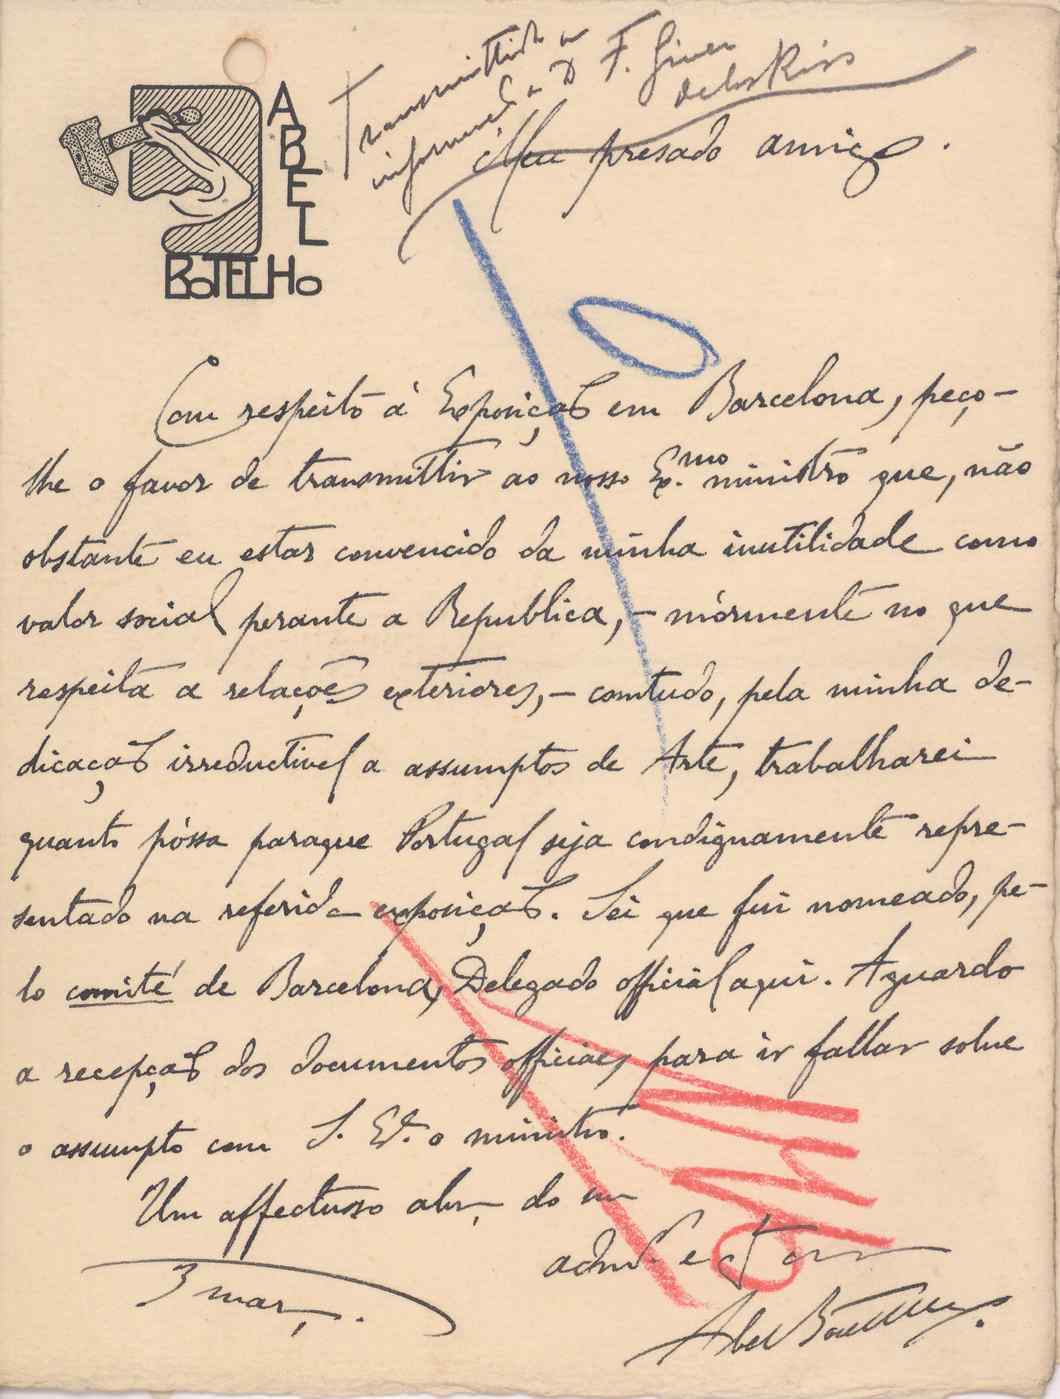 Transmittida a
informad a D F. Giner
de los Rios
ABEL
BOTELHO
Meu presado amigo.
Com respeito á Exposição em Barcelona, peço-
lhe o favor de transmittir ao nosso Ex.mo ministro que, não
obstante eu estar convencido da minha inutilidade como
valor social perante a Republica, – mórmente no que
respeita a relações exteriores, – comtudo, pela minha de-
dicação irreductivel a assumptos de Arte, trabalharei
quanto póssa paraque Portugal seja condignamente repre-
sentado na referida exposição. Sei que fui nomeado, pe-
lo comité de Barcelona, Delegado official aqui. Aguardo
a recepção dos documentos officiaes, para ir fallar sobre
o assumpto com S. Ex.ª o ministro.
Um affectuoso abrç do seu
adm.or e
3 març.
Abel Botelho.